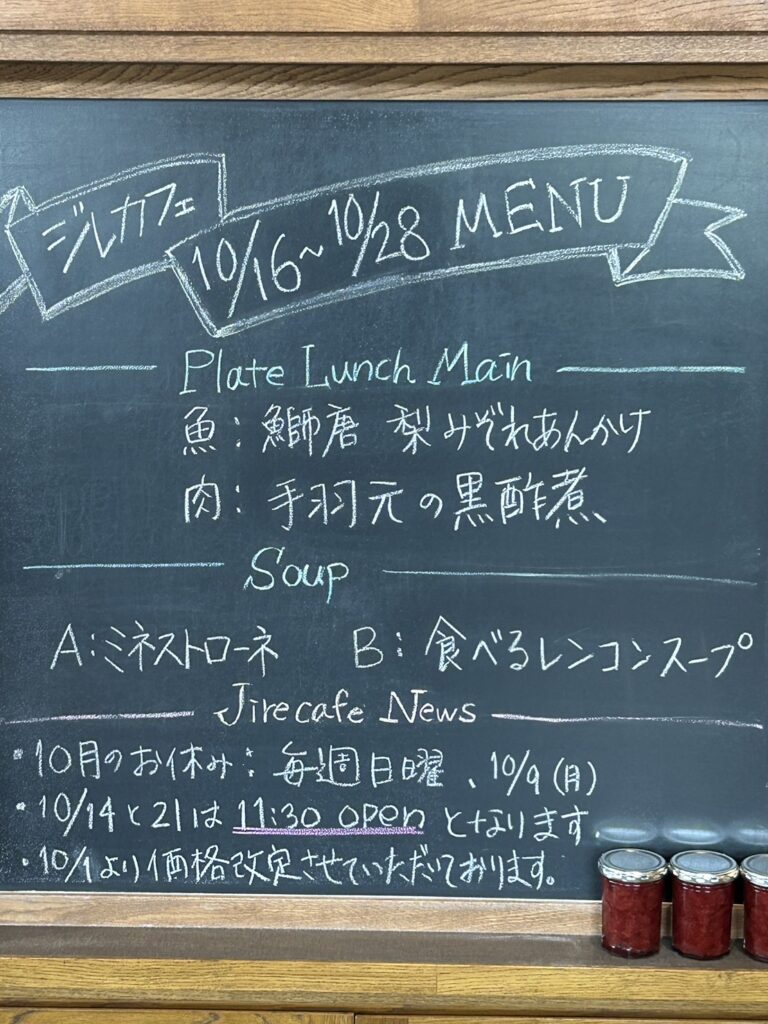 ジルカフェ 10/16~10/28 MENU
Plate Lunch Main
魚：鰤唐 梨みぞれあんかけ
肉：手羽元の黒酢煮
Soup
A：ミネストローネ B：食べるレンコンスープ
Jirecafe News
・10月のお休み：毎週日曜、10/9(月)
・10/14と21は 11:30 open となります
・10/1より価格改定させていただいております。